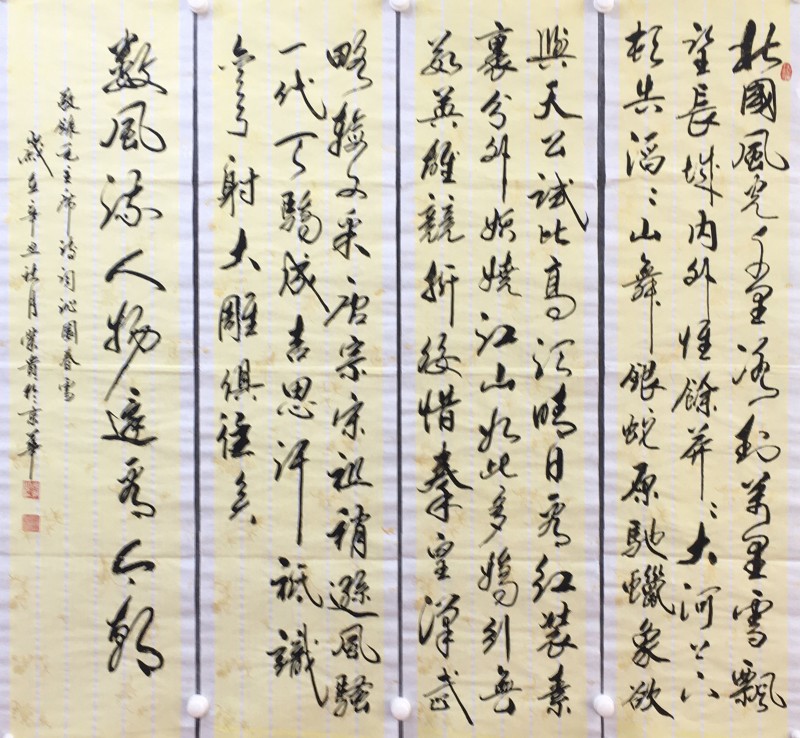 北國風光千里冰封萬里雪飄
望長城內外惟餘莽〻大河上下
頓失滔〻山舞銀蛇原馳蠟象欲
與天公試比高須晴日看紅裝素
裹分外妖嬈江山如此多嬌引無
數英雄競折腰惜秦皇漢武
略輸文采唐宗宋祖稍遜風騷
一代天驕成吉思汗祗識
彎弓射大雕俱往矣
數風流人物還看今朝
敬錄毛主席詩詞沁園春雪
歲在辛丑秋月榮貴於京華